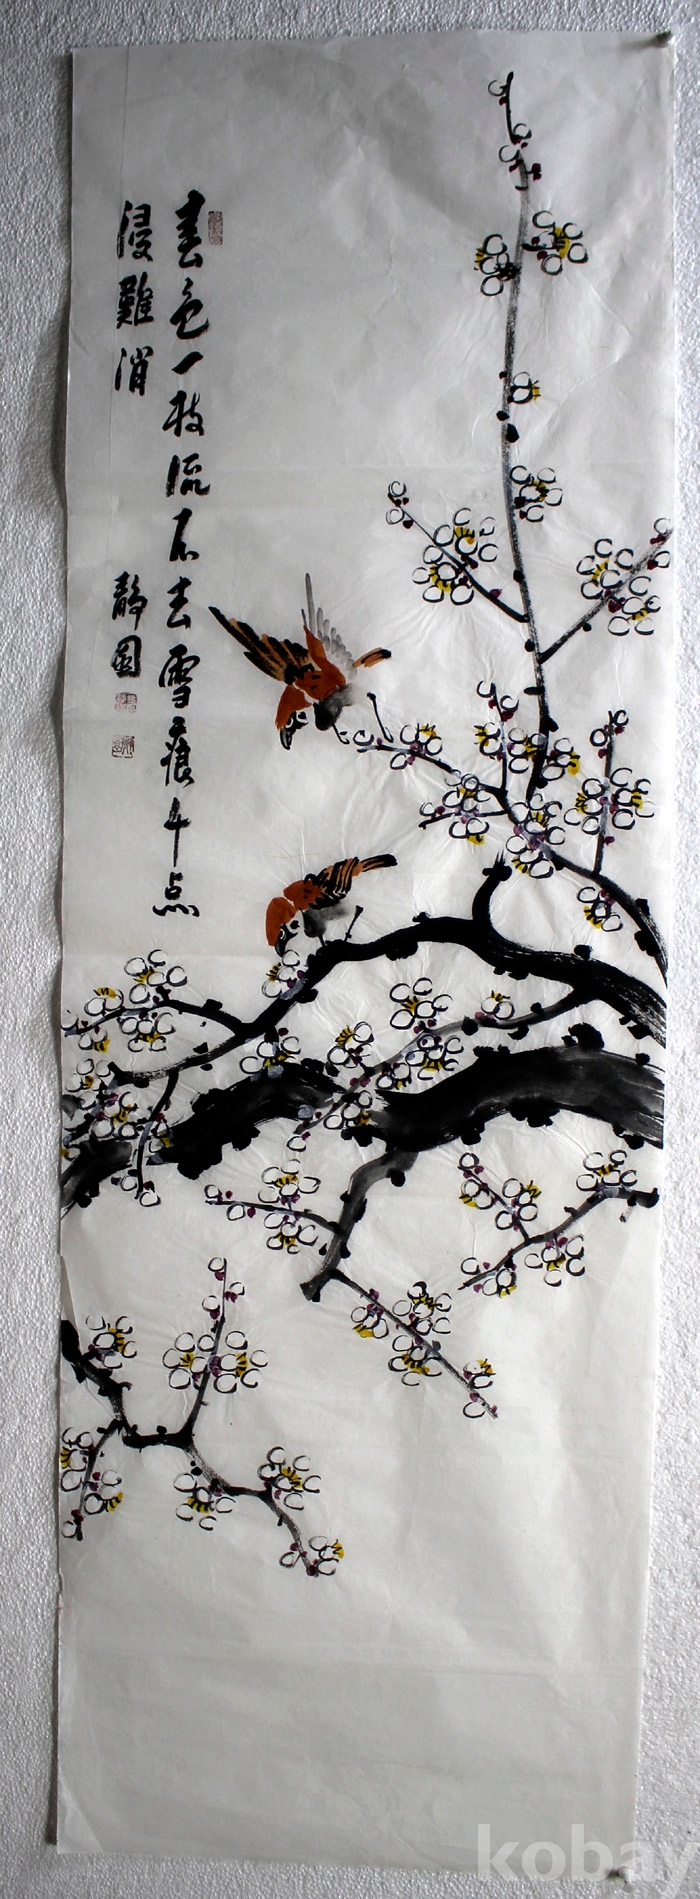 春色一枝流不去雪痕千点
浸難消
靜園
kobay